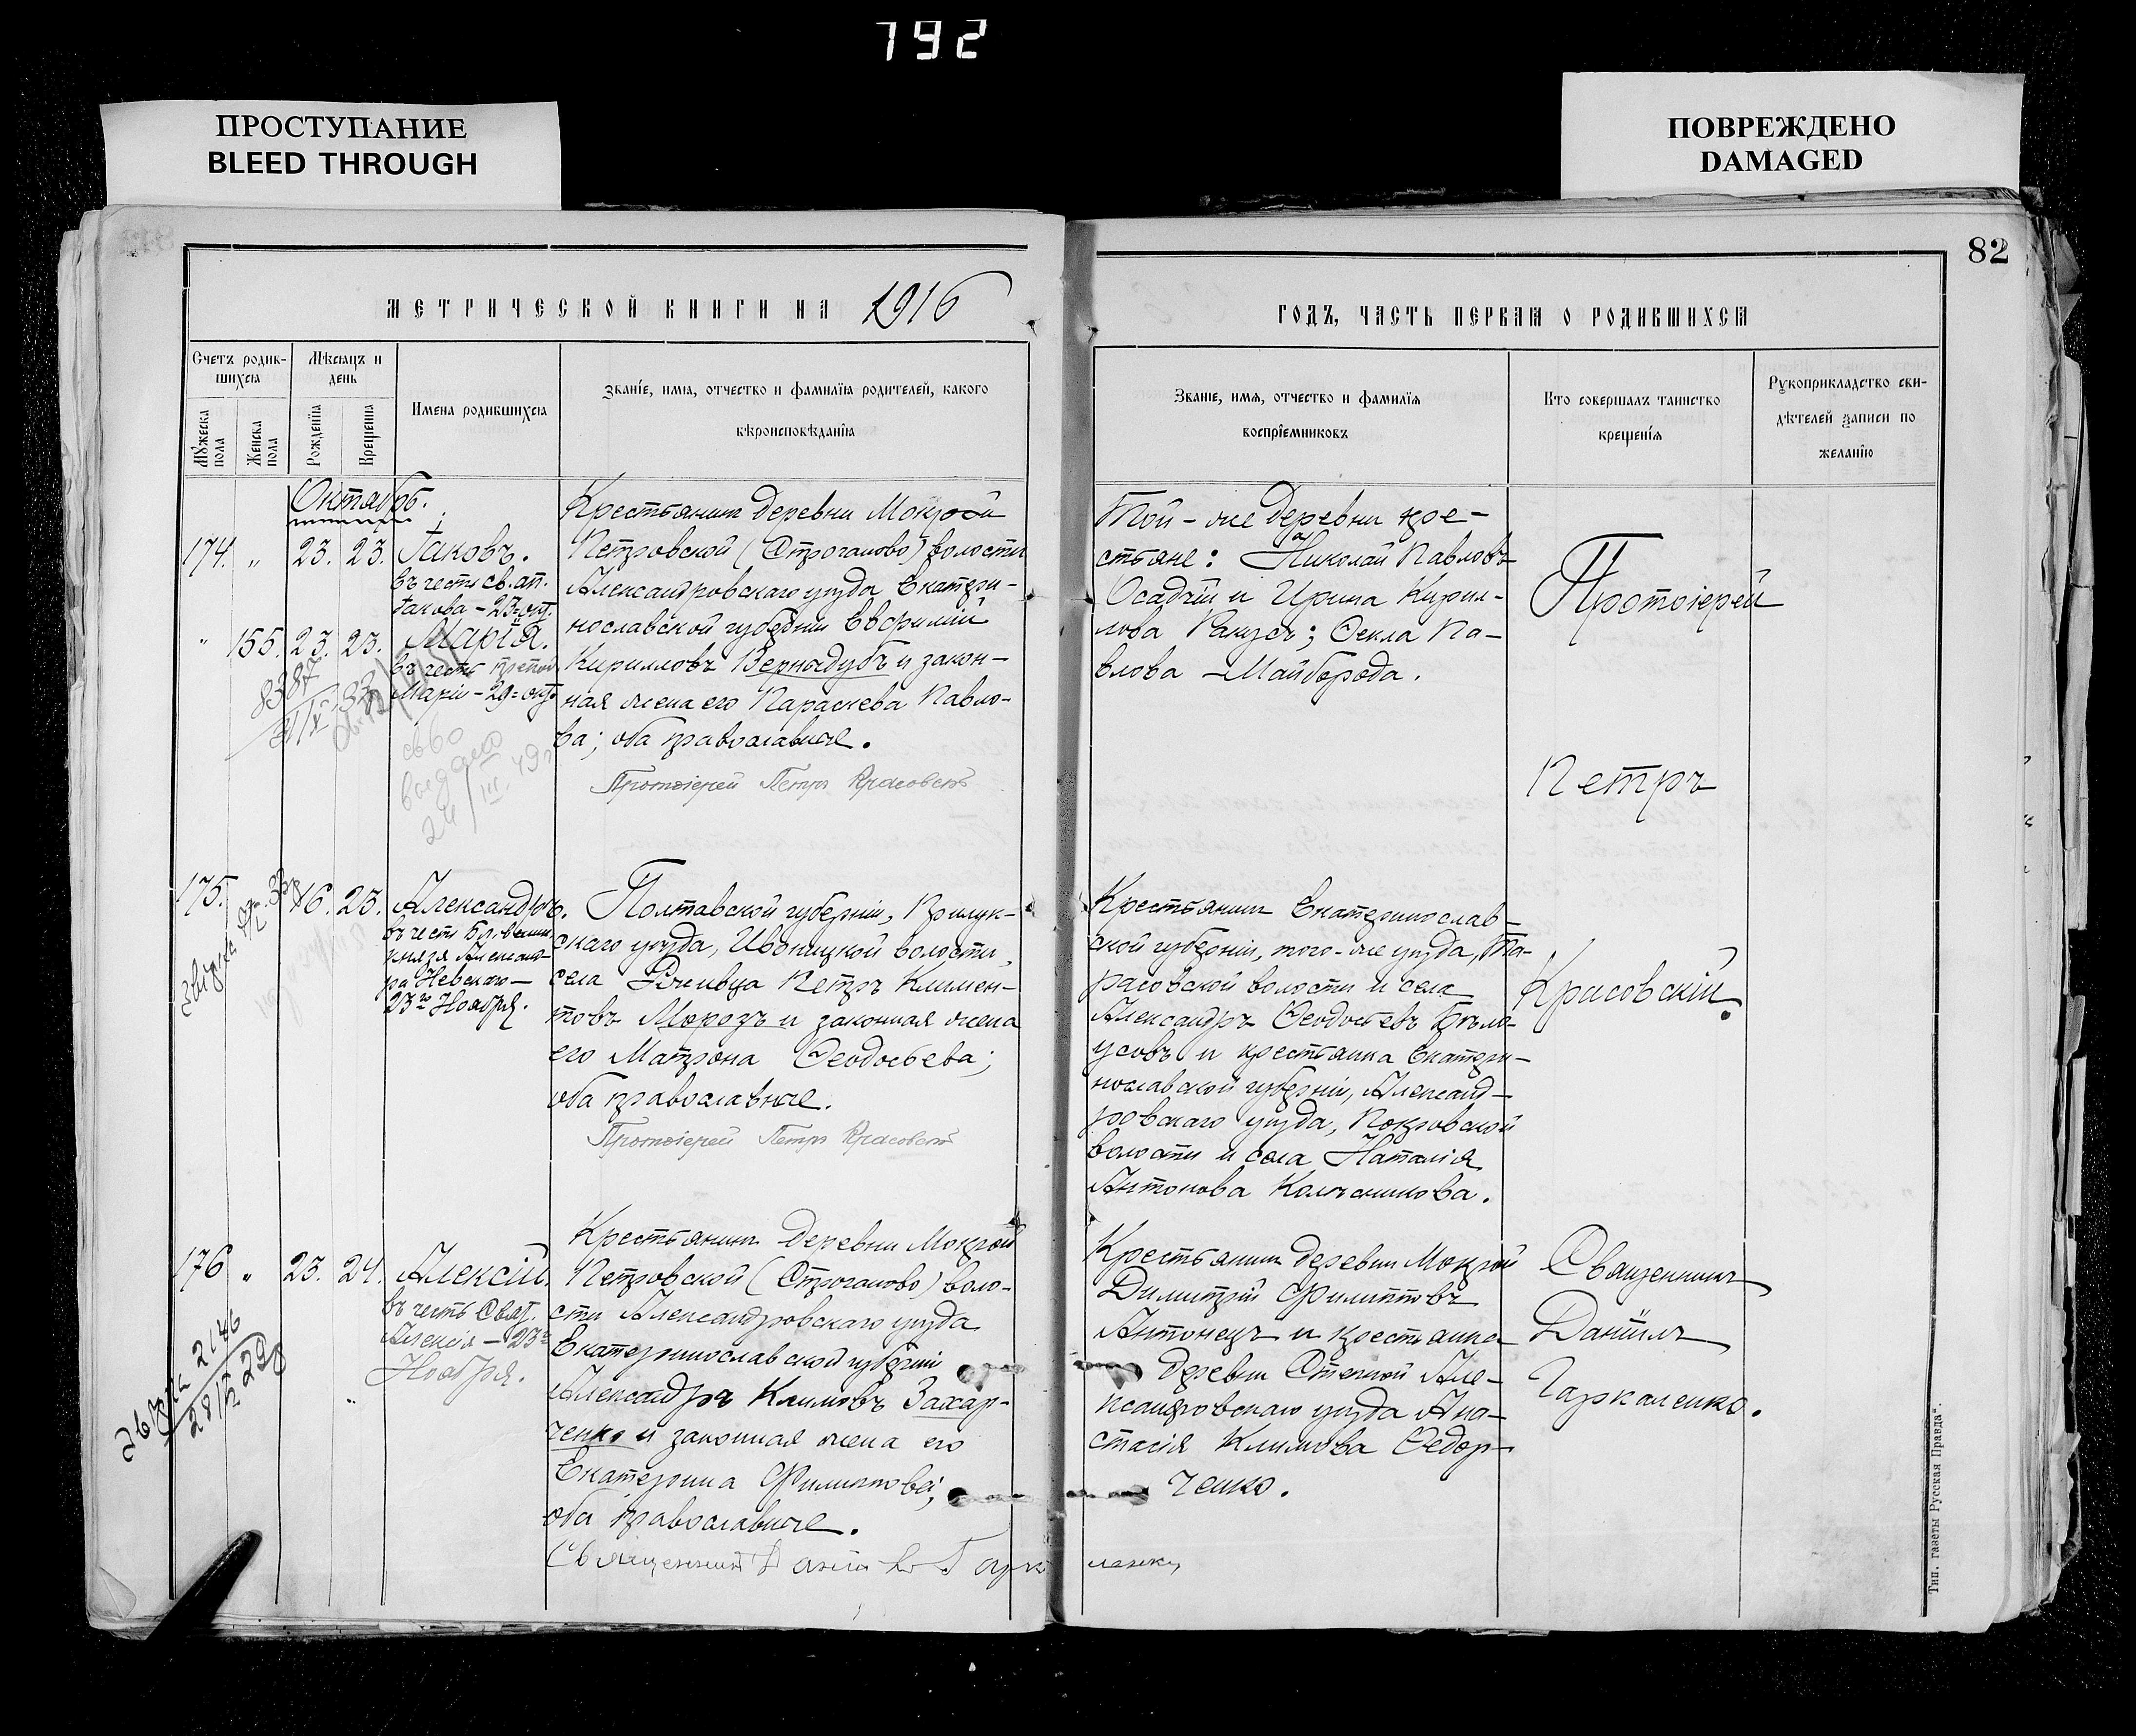 792
ПРОСТУПАНИЕ
BLEED THROUGH
ПОВРЕЖДЕНО
DAMAGED
82
МЕТРИЧЕСКОЙ КНИГИ НА 1916
ГОДЪ, ЧАСТЬ ПЕРВАЯ О РОДИВШИХСЯ
Счетъ родив-
шихся
Мужеска пола
Женска пола
Мѣсяцъ и
день
Рожденія
Крещенія
Имена родившихся
Званіе, имя, отчество и фамилія родителей, какого
вѣроисповѣданія
Званіе, имя, отчество и фамилія
воспріемниковъ
Кто совершалъ таинство
крещенія
Рукоприкладство сви-
дѣтелей записи по
желанію
Октябрь.
174. " 23. 23. Іаковъ.
въ честь св. ап.
Іакова – 23 = окт.
" 155. 23. 23. Марія.
въ честь препод.
Маріи – 29 = окт.
8387
св-во
выдано
24/III 49
Крестьянинъ деревни Мокрой
Петровской (Строганово) волости
Александровскаго уѣзда Екатери-
нославской губерніи Евфимій
Кирилловъ Вернидубъ и закон-
ная жена его Параскева Павло-
ва; оба православные.
Протоіерей Петръ Красовскій
Той-же деревни кре-
стьяне: Николай Павловъ
Осадчій и Ирина Кирил-
лова Ракусъ; Ѳекла Па-
влова Майборода.
Протоіерей
Петръ
Красовскій.
175. 16. 23. Александръ.
въ честь Бл. велик.
князя Александ-
ра Невскаго –
23го Ноября.
Полтавской губерніи, Прилук-
скаго уѣзда, Иваницкой волости,
села Ржавца Петръ Климен-
товъ Морозъ и законная жена
его Матрона Ѳеодосьева;
оба православные.
Протоіерей Петръ Красовскій
Крестьянинъ Екатеринослав-
ской губерніи, того-же уѣзда, Та-
расовской волости и села
Александръ Ѳеодосьевъ Бѣло-
усовъ и крестьянка Екатери-
нославской губерніи, Александ-
ровскаго уѣзда, Покровской
волости и села Наталія
Антонова Колѣсникова.
176 " 23. 24. Алексій.
въ честь Свят.
Алексія – 23го
Ноября.
звірка 2146
Крестьянинъ деревни Мокрой
Петровской (Строганово) воло-
сти Александровскаго уѣзда
Екатеринославской губерніи
Александръ Климовъ Захар-
ченко и законная жена его
Екатерина Филиппова;
оба православные.
Священникъ Даніилъ Гаркаленко
Крестьянинъ деревни Мокрой
Димитрій Филипповъ
Антонецъ и крестьянка
деревни Степной Але-
ксандровскаго уѣзда Ана-
стасія Климова Ѳедор-
ченко.
Священникъ
Даніилъ
Гаркаленко.
Тип. газеты "Русская Правда".